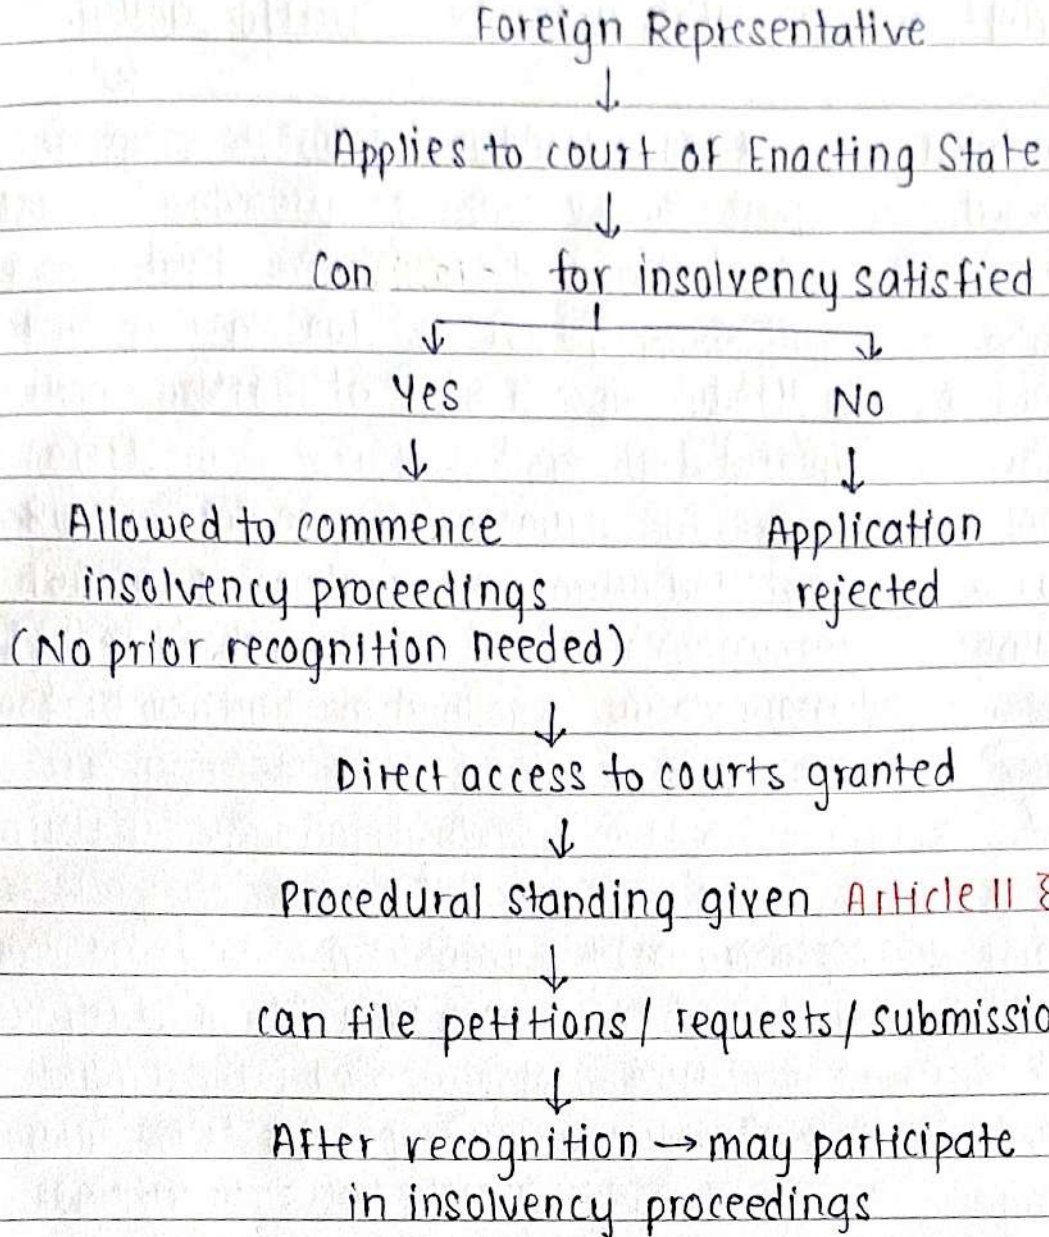 Foreign Representative
↓
Applies to court of Enacting State
↓
Con for insolvency satisfied
↓ ↓
Yes No
↓ ↓
Allowed to commence Application
insolvency proceedings rejected
(No prior recognition needed)
↓
Direct access to courts granted
↓
Procedural standing given Article 11
↓
can file petitions / requests / submissio
↓
After recognition → may participate
in insolvency proceedings